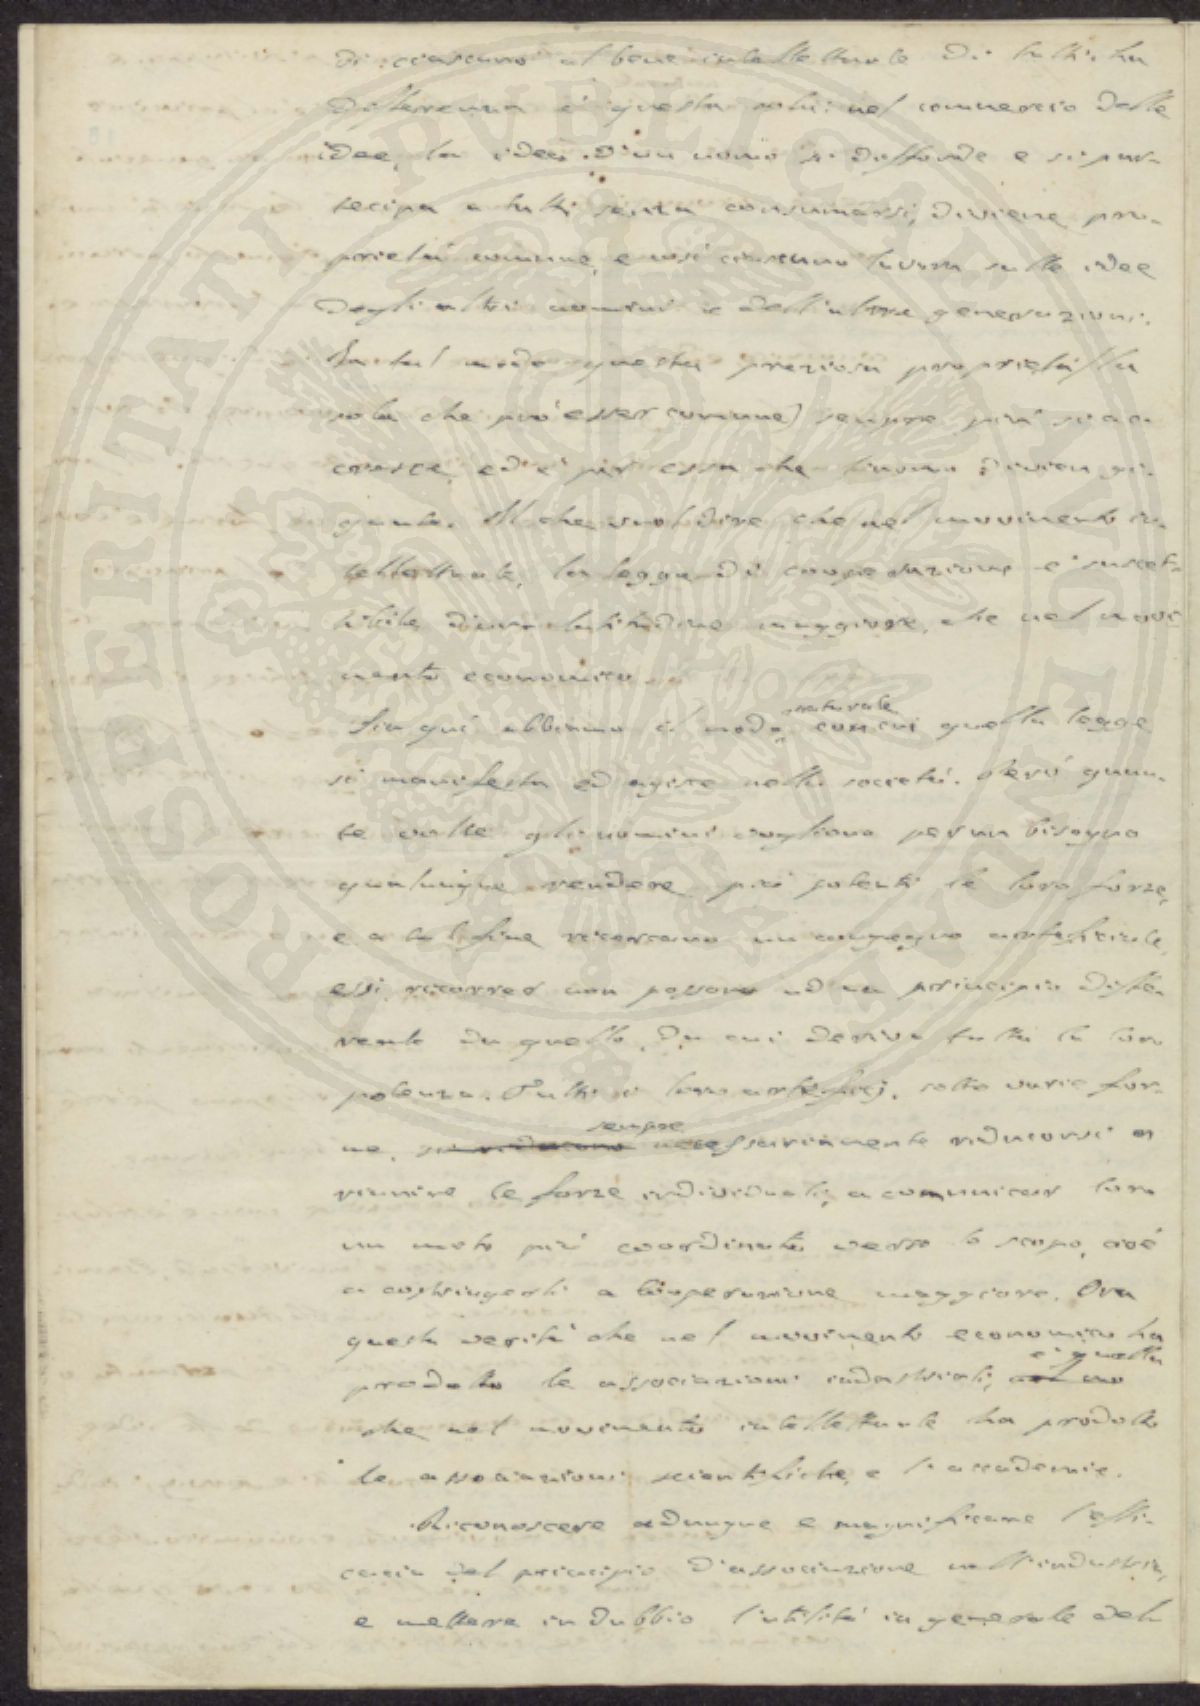 di ciascuno al bene intellettuale di tutti. La
differenza è questa sola: nel commercio delle
idee, la idea d'un uomo si diffonde e si par-
tecipa a tutti senza consumarsi, diviene pro-
prietà comune, e così ciascuno lavora sulle idee
degli altri uomini e dell'altre generazioni.
In tal modo questa preziosa proprietà (la
sola che può esser comune) sempre più s'ac-
cresce, ed è per essa che l'uomo divien gi-
gante. Il che vuol dire che nel movimento in-
tellettuale, la legge di cooperazione è suscet-
tibile d'una latitudine maggiore, che nel movi
mento economico.
Fin qui abbiamo il modo naturale con cui quella legge
si manifesta ed agisce nella società. Però quan-
te volte gli uomini vogliono per un bisogno
qualunque rendere più potenti le loro forze,
e a tal fine ricercano un congegno artificiale,
essi ricorrer non possono ad un principio diffe-
rente da quello, da cui deriva tutta la loro
potenza. Tutti i loro artefici, sotto varie for-
me, si riducono sempre necessariamente riduconsi a
riunire le forze individuali, a comunicar loro
un moto più coordinato verso lo scopo, cioè
a costringerli a cooperazione maggiore. Ora
questa verità che nel movimento economico ha
prodotto le associazioni industriali, è quella
che nel movimento intellettuale ha prodotto
le associazioni scientifiche, e le accademie.
Riconoscere adunque e magnificare l'effi-
cacia del principio d'associazione nell'industria,
e mettere in dubbio l'utilità in generale del-
PROSPERITATI PVBLICAE AVGENDAE